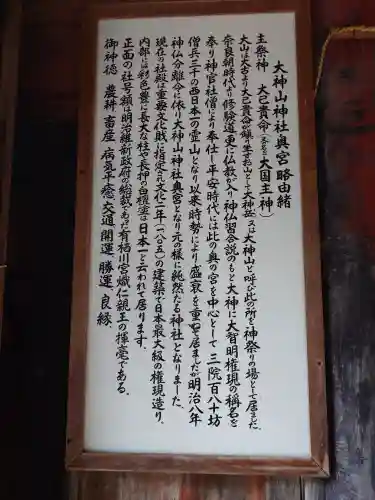 大神山神社奥宮略由緒
主祭神　大己貴命（またの名大国主神）
大山は大古より大己貴命が鎮り坐す山として大神岳又は大神山と呼び此の所で神祭りの場として居ました。
奈良朝時代より修験道更に仏教が入り神仏習合説のもと大神に大智明権現の称名を
奉り神官社僧により奉仕し平安時代には此の奥の宮を中心として三院百八十坊
僧兵三千の西日本一の霊山となり以来時勢により盛衰を重ねて居ましたが明治八年
神仏分離令に依り大神山神社奥宮となり元の様に純然たる神社となりました。
現在の社殿は重要文化財に指定され文化二年（一八〇五）の建築で日本最大級の権現造り、
内部には彩色豊に長大な柱や長押の白檀塗は日本一と云われて居ります。
正面の社号額は明治維新政府の総裁であった有栖川宮熾仁親王の揮毫である。
御神徳　農耕、畜産、病気平癒、交通、開運、勝運、良縁、